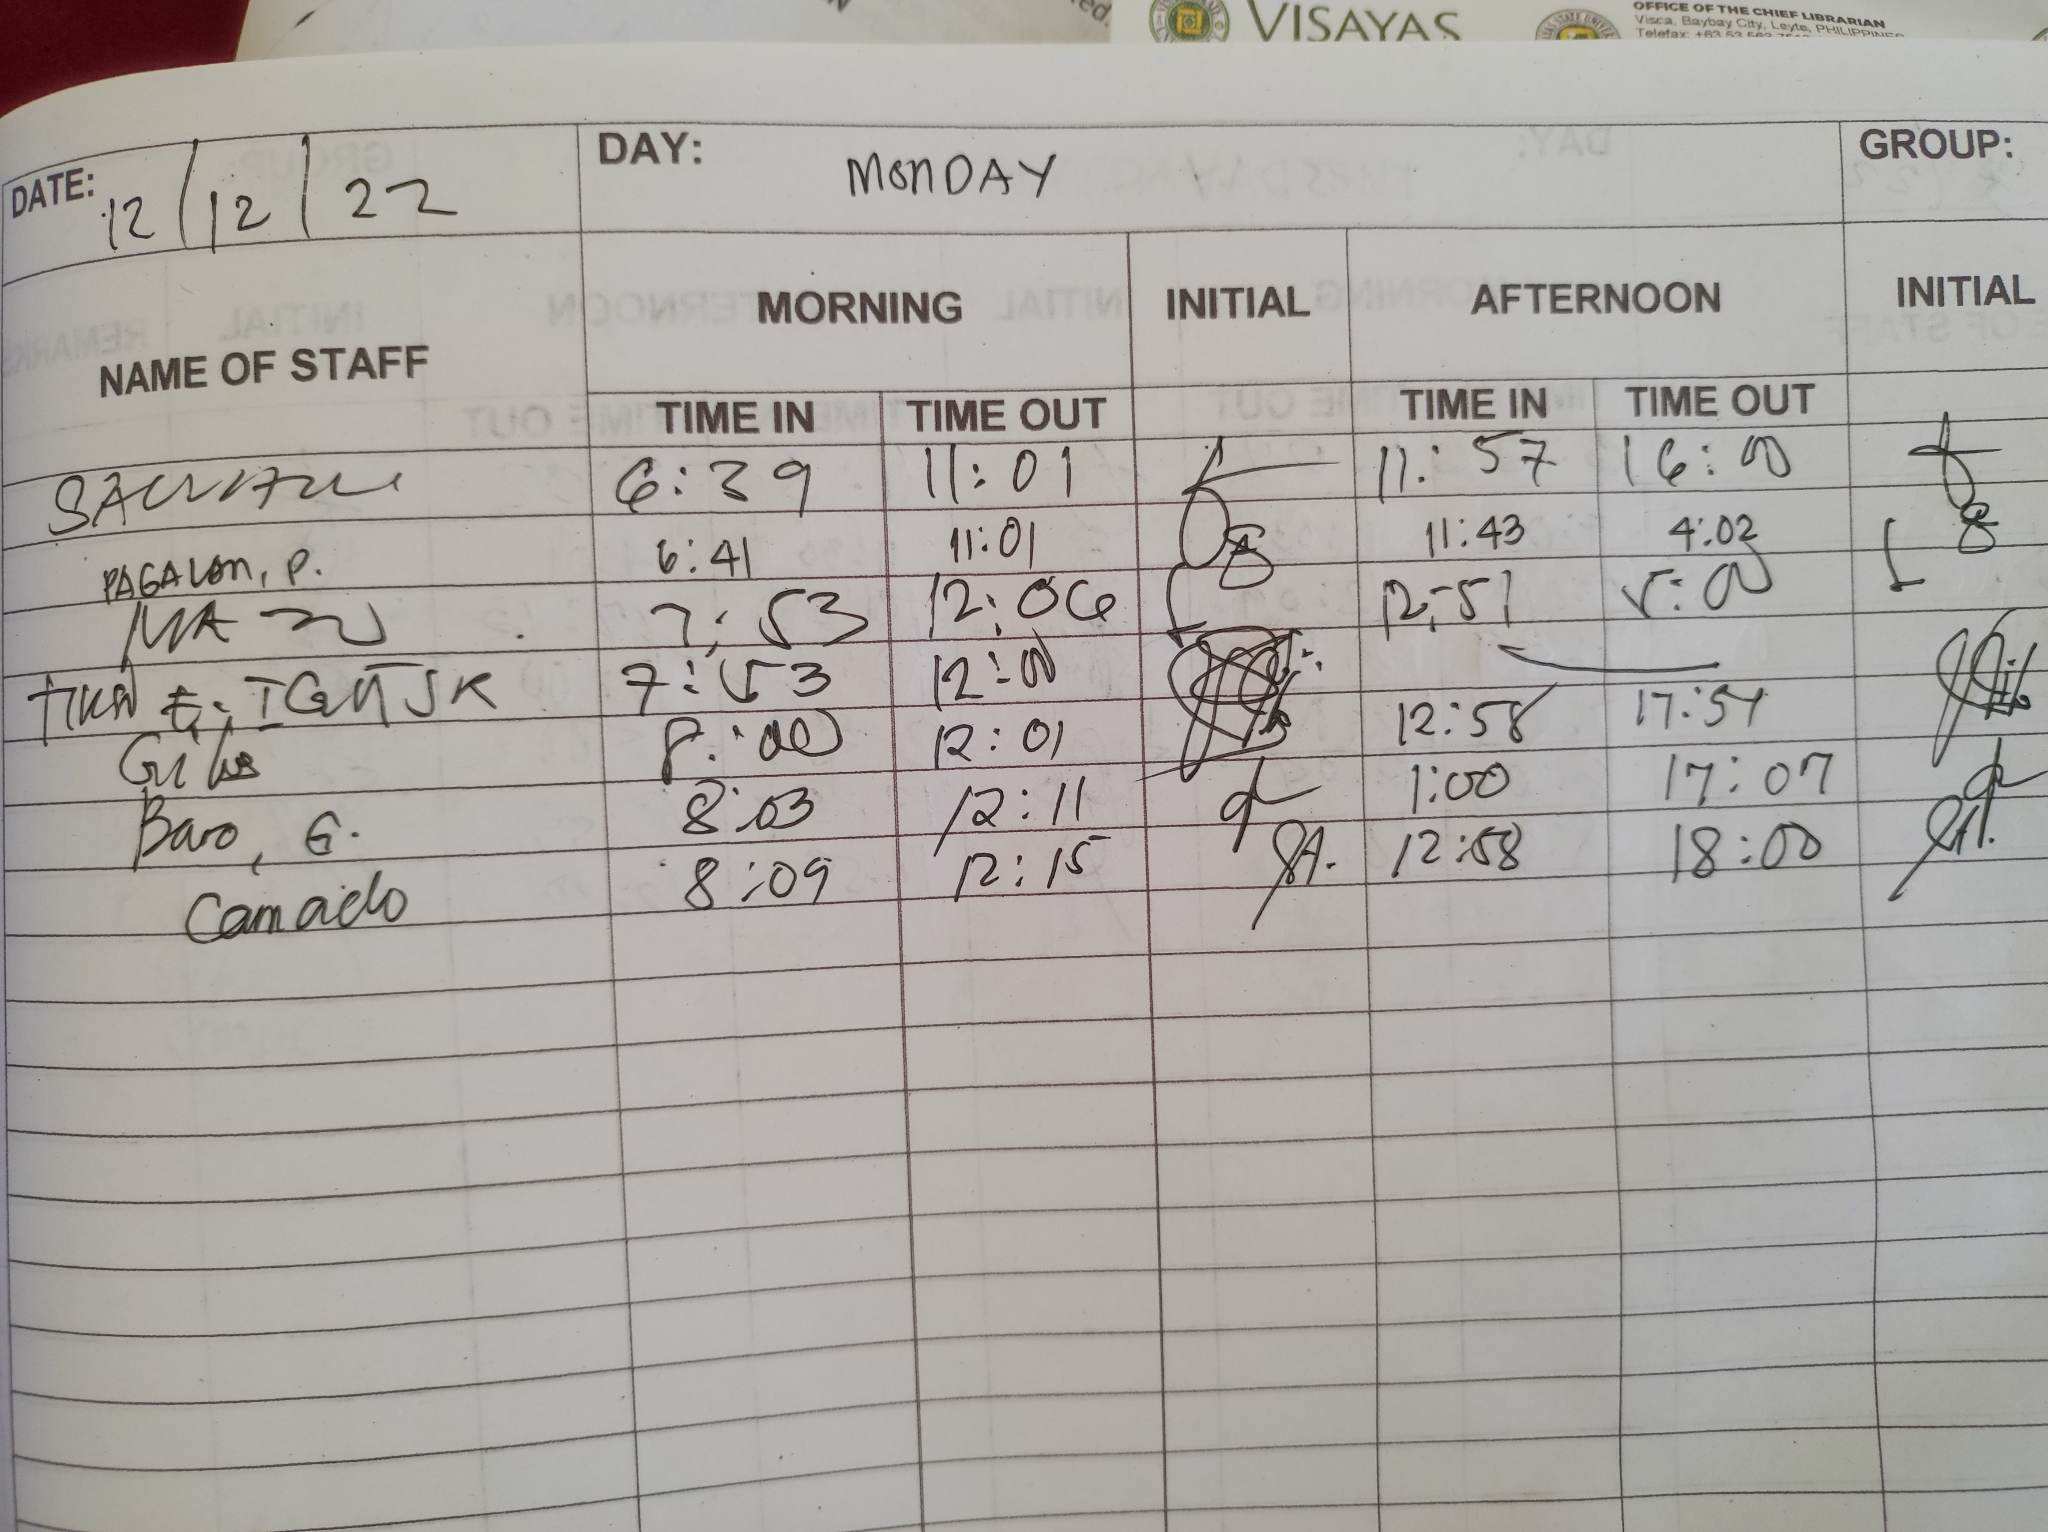 VISAYAS
OFFICE OF THE CHIEF LIBRARIAN
Visca, Baybay City, Leyte, PHILIPPINES
DATE: 12/12/22 DAY: MONDAY GROUP:
NAME OF STAFF MORNING INITIAL AFTERNOON INITIAL
TIME IN TIME OUT TIME IN TIME OUT
6:39 11:01 11:57 16:00
PAGALAN, P. 6:41 11:01 11:43 4:02
7:53 12:06 12:51 5:00
7:53 12:00
8:00 12:01 12:58 17:54
Baro, G. 8:03 12:11 1:00 17:07
Camacho 8:09 12:15 12:58 18:00